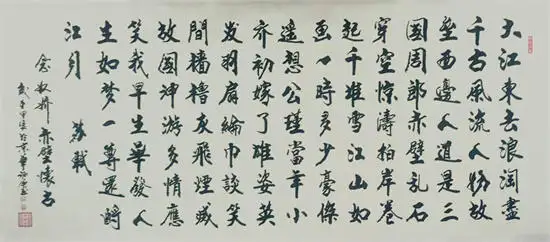 大江東去浪淘盡
千古風流人物故
壘西邊人道是三
國周郎赤壁乱石
穿空惊濤拍岸卷
起千堆雪江山如
画一時多少豪傑
遥想公瑾當年小
乔初嫁了雄姿英
发羽扇綸巾談笑
間檣櫓灰飛煙滅
故國神游多情應
笑我早生華發人
生如梦一尊還酹
江月 蘇軾
念奴嬌赤壁懷古